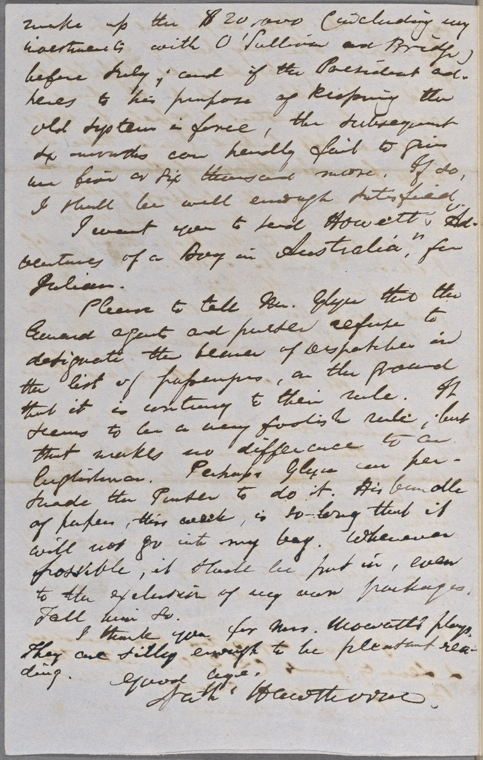 make up the $20,000 (including my
investments with O'Sullivan and Bridge)
before July; and if the President ad-
heres to his purpose of keeping the
old system in force, the subsequent
six months can hardly fail to give
me five or six thousand more. If so,
I shall be well enough satisfied.
I want you to send Howett's "Ad-
ventures of a Boy in Australia," for
Julian.
Please to tell Mr. Glynn that the
Cunard agent and purser refuse to
designate the bearer of Despatches in
the list of passengers, on the ground
that it is contrary to their rule. It
seems to be a very foolish rule; but
that makes no difference to an
Englishman. Perhaps Glynn can per-
suade the Purser to do it. His bundle
of papers, this week, is so long that it
will not go into my bag. Whenever
possible, it shall be put in, even
to the exclusion of my own packages.
Tell him so.
I thank you for Mrs. Mowatt's plays.
They are silly enough to be pleasant rea-
ding. Good bye.
Nathl Hawthorne.